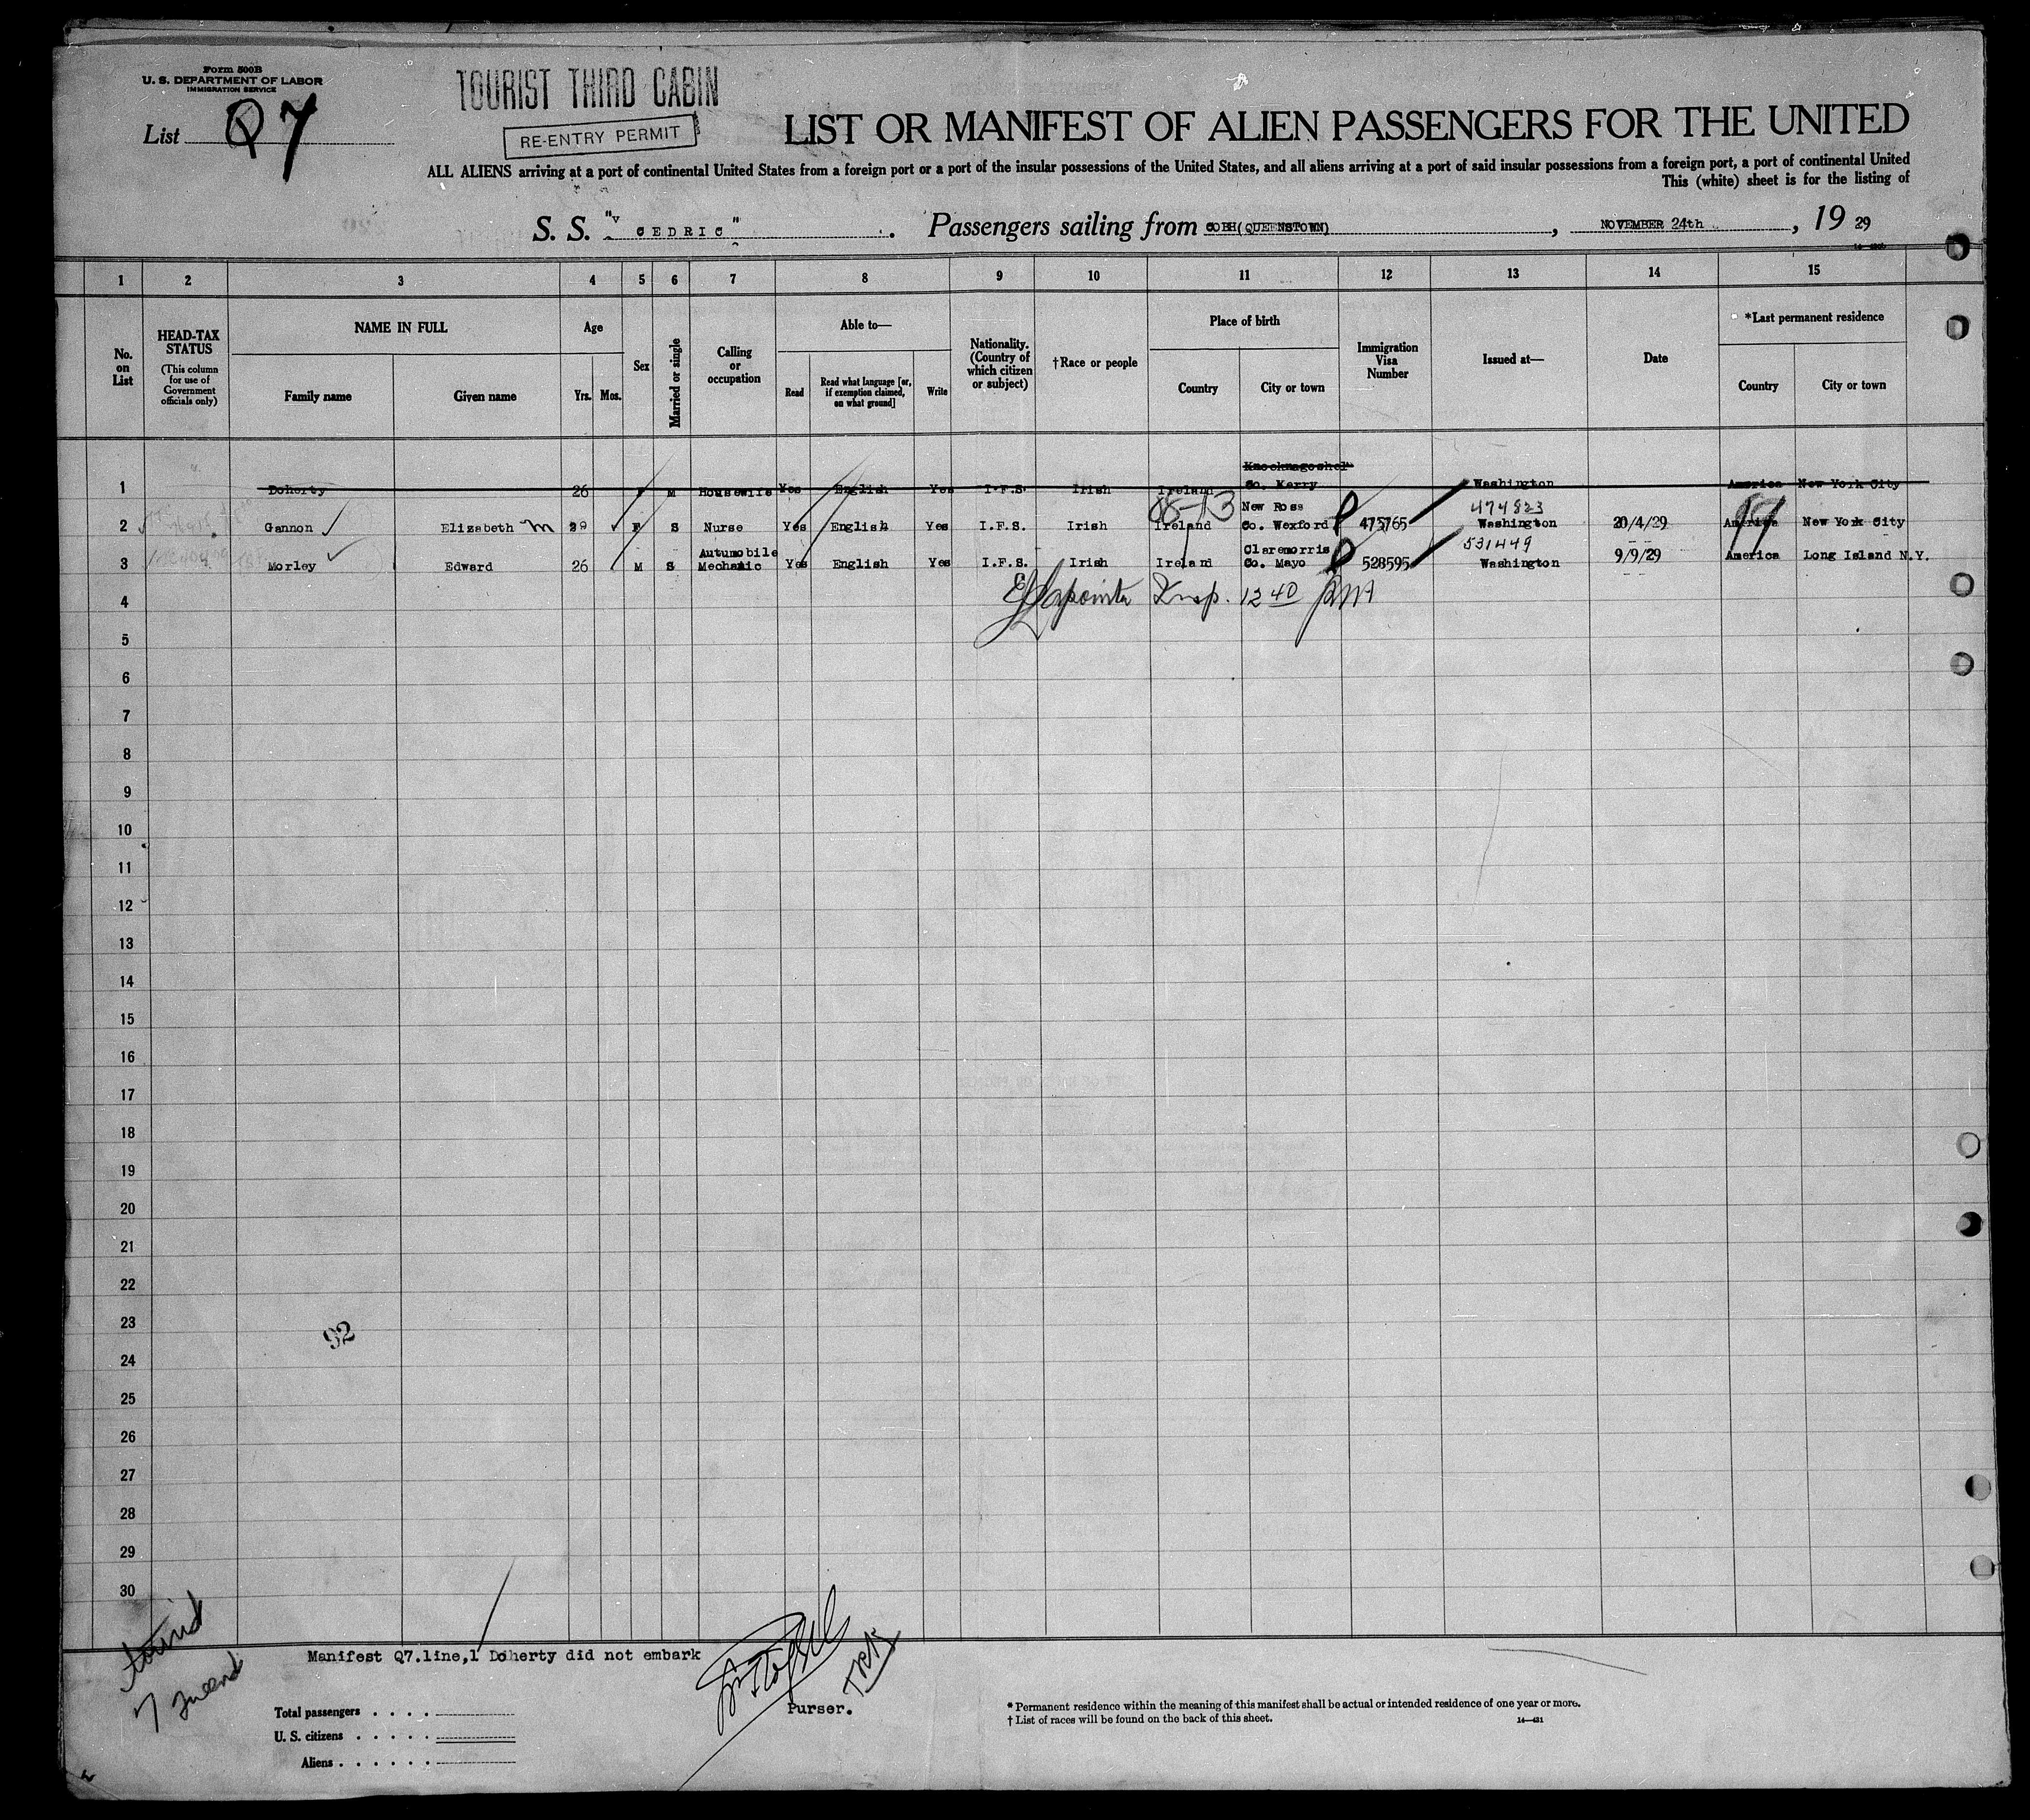 Form 500B
U. S. DEPARTMENT OF LABOR
IMMIGRATION SERVICE
List Q7
TOURIST THIRD CABIN
RE-ENTRY PERMIT
LIST OR MANIFEST OF ALIEN PASSENGERS FOR THE UNITED
ALL ALIENS arriving at a port of continental United States from a foreign port or a port of the insular possessions of the United States, and all aliens arriving at a port of said insular possessions from a foreign port, a port of continental United
This (white) sheet is for the listing of
S. S. "CEDRIC". Passengers sailing from COBH(QUEENSTOWN), NOVEMBER 24th, 19 29
1 2 3 4 5 6 7 8 9 10 11 12 13 14 15
No. on List
HEAD-TAX STATUS
(This column for use of Government officials only)
NAME IN FULL
Family name
Given name
Age
Yrs. Mos.
Sex
Married or single
Calling or occupation
Able to—
Read
Read what language [or, if exemption claimed, on what ground]
Write
Nationality. (Country of which citizen or subject)
†Race or people
Place of birth
Country
City or town
Immigration Visa Number
Issued at—
Date
*Last permanent residence
Country
City or town
Knocknagoshel
1 Doherty 26 F M Housewife Yes English Yes I.F.S. Irish Ireland Co. Kerry Washington America New York City
18-13 New Ross 474823
2 Gannon Elizabeth M 29 F S Nurse Yes English Yes I.F.S. Irish Ireland Co. Wexford 475765 Washington 20/4/29 America New York City
Autumobile Claremorris 531449
3 Morley Edward 26 M S Mechanic Yes English Yes I.F.S. Irish Ireland Co. Mayo 528595 Washington 9/9/29 America Long Island N.Y.
4 Lapointe Insp. 12 40
5
6
7
8
9
10
11
12
13
14
15
16
17
18
19
20
21
22
23
92
24
25
26
27
28
29
30
Manifest Q7.line,1 Doherty did not embark
Purser.
Total passengers
U. S. citizens
Aliens
* Permanent residence within the meaning of this manifest shall be actual or intended residence of one year or more.
† List of races will be found on the back of this sheet.
14—431